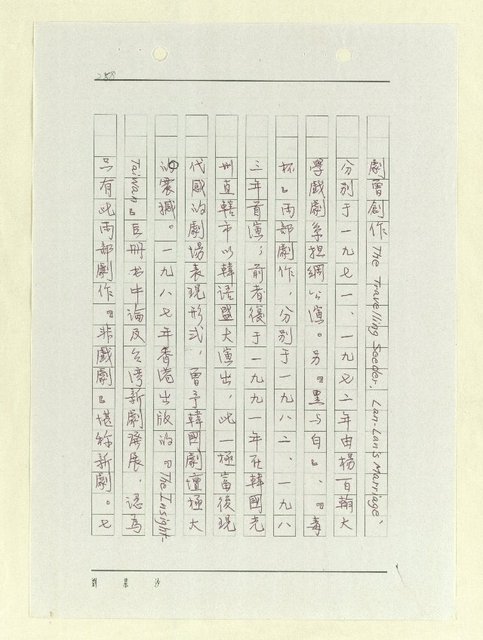 劇曾創作 The Travelling Seeder, Lan-Lan's Marriage,
分别于一九七一、一九七二年由揚百翰大
學戲劇系担綱公演。另『黑与白』、『毒
杯』两部劇作,分别于一九八二、一九八
三年首演;前者後于一九九一年在韓國光
州直轄市以韓語盛大演出,此一極富後現
代風的劇場表現形式,曾予韓國劇壇極大
的震撼。一九八七年香港出版的『The Insight-
Taiwan』巨冊书中論及台湾新劇發展,認為
只有此两部劇作『非戲劇』堪称新劇。七
劉 墓 沙